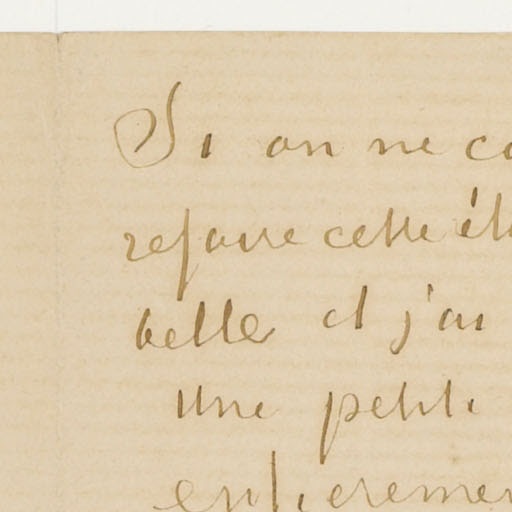 Si on ne co
refaire cette ét
belle et j'ai
une petite
entieremen